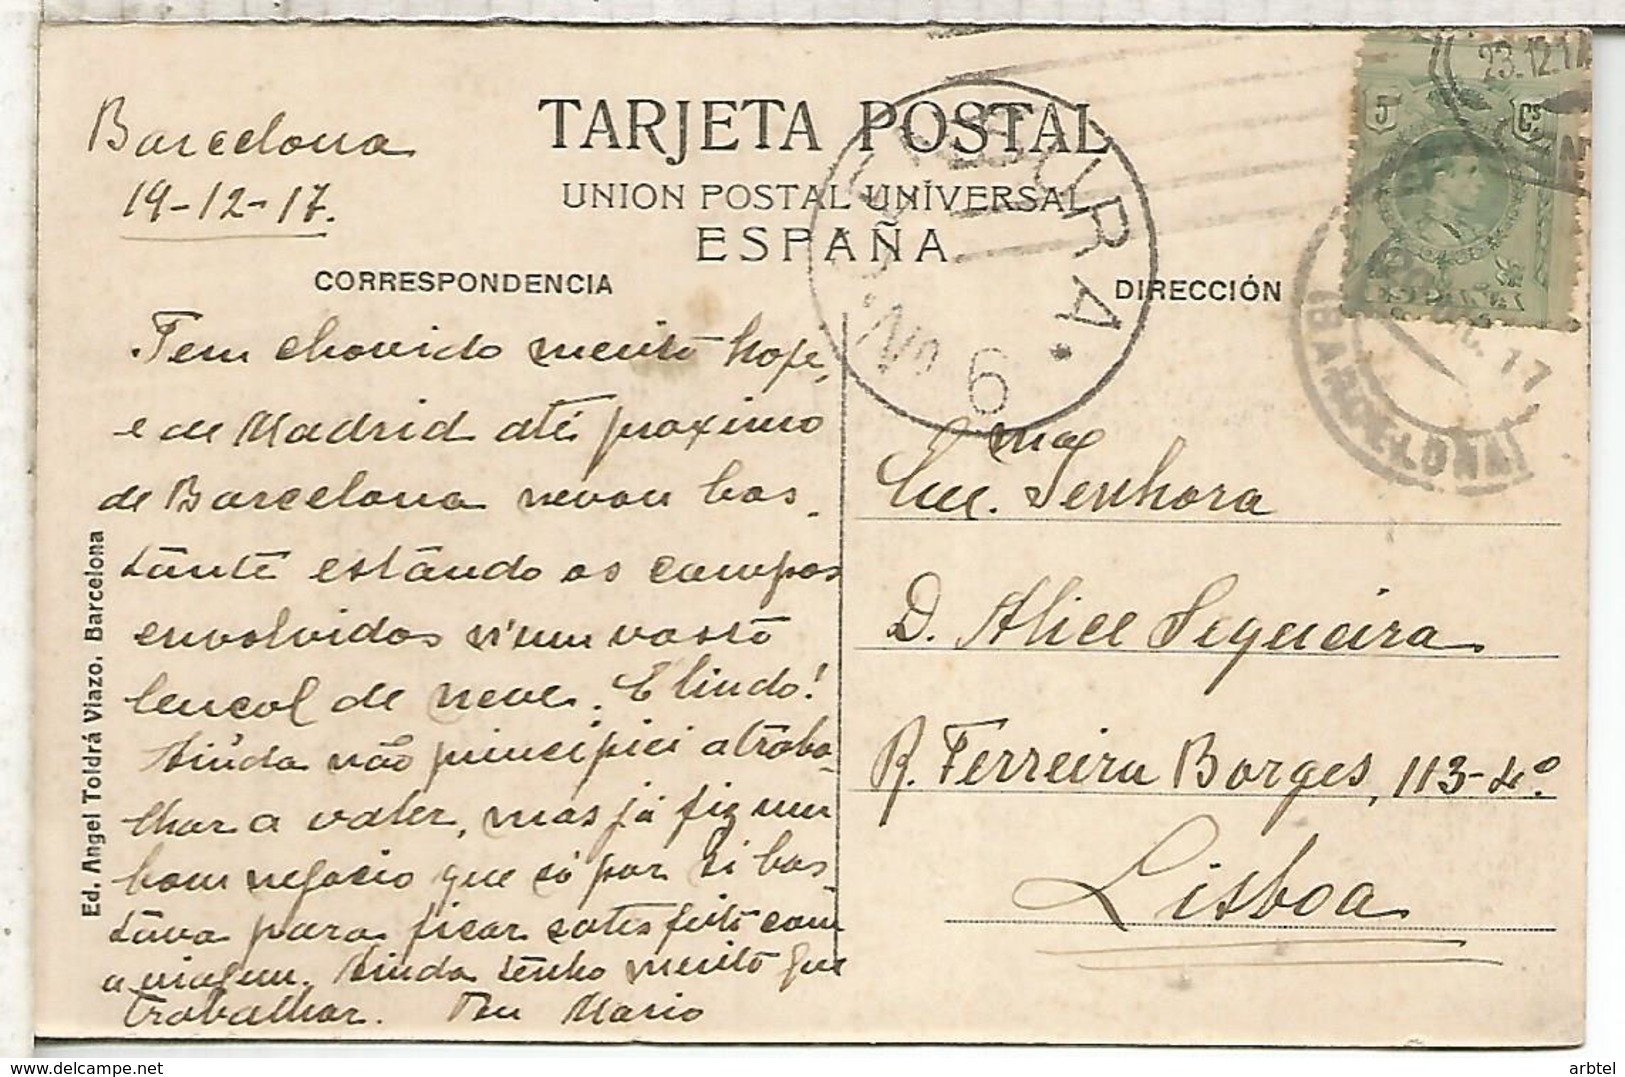 TARJETA POSTAL
UNION POSTAL UNIVERSAL
ESPAÑA
CORRESPONDENCIA
DIRECCIÓN
Barcelona
19-12-17.
Tem chovido muito hoje,
e de Madrid até proximo
de Barcelona nevou bas-
tante estando os campos
envolvidos n'um vasto
lençol de neve. É lindo!
Ainda não principiei a traba-
lhar a valer, mas já fiz um
bom negocio que só por si bas-
tava para ficar satisfeito com
a viagem. Ainda tenho muito que
trabalhar. Teu Mario
Ema
Exc. Senhora
D. Alice Sequeira
R. Ferreira Borges, 113-4º
Lisboa
Ed. Angel Toldrá Viazo, Barcelona
5 Cs
23.12.17
BARCELONA
CENSURA
No 6
arbtel